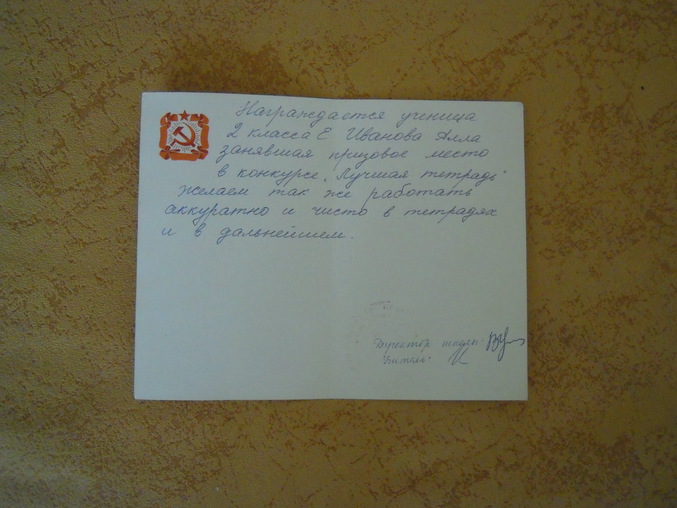 Награждается ученица
2 класса Е Иванова Алла
занявшая призовое место
в конкурсе „Лучшая тетрадь"
желаем так же работать
аккуратно и чисто в тетрадях
и в дальнейшем.
Директор школы:
Учитель: